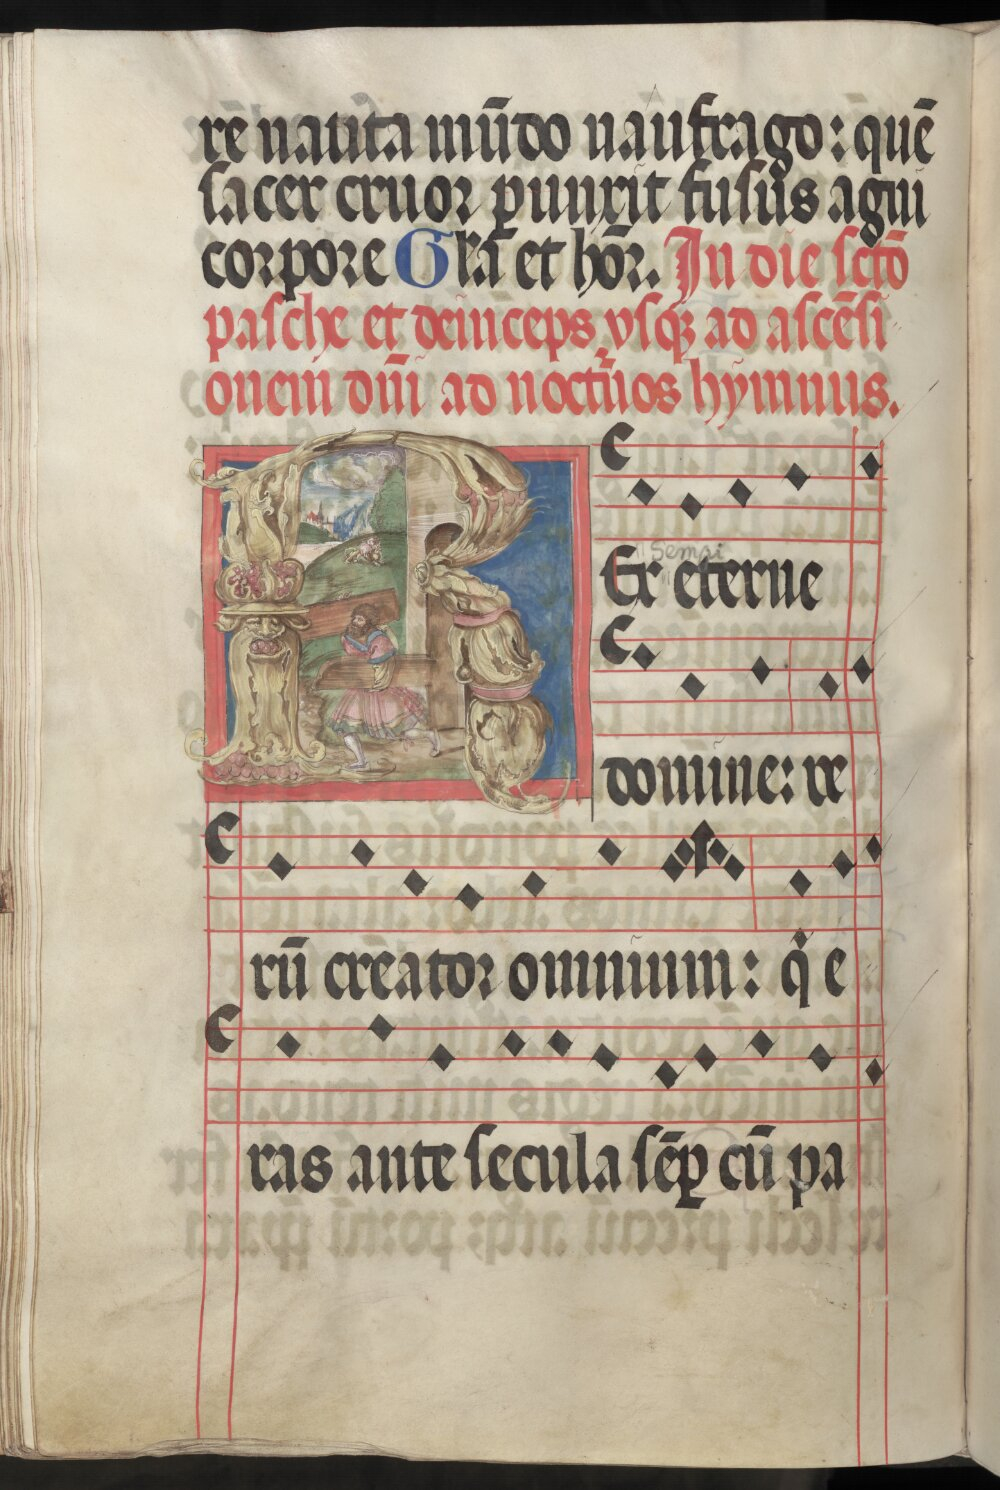 rē nauta mūdo naufrago: quē
sacer cruor punxit fusus agni
corpore Gl'a et hōr. In die sctō
pasche et deinceps vsq; ad ascēsi
onem dn̄i ad noctūos hymnus.
Sempi
REx eterne
domine: re
rū crēator omnium: q̇ e
ras ante secula sēꝑ cū pa